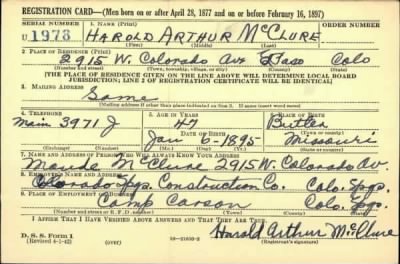 REGISTRATION CARD—(Men born on or after April 28, 1877 and on or before February 16, 1897)
SERIAL NUMBER 1. NAME (Print) ORDER NUMBER
U 1973 HAROLD ARTHUR McCLURE
(First) (Middle) (Last)
2. PLACE OF RESIDENCE (Print)
2915 W. Colorado Ave El Paso Colo
(Number and street) (Town, township, village, or city) (County) (State)
[THE PLACE OF RESIDENCE GIVEN ON THE LINE ABOVE WILL DETERMINE LOCAL BOARD
JURISDICTION; LINE 2 OF REGISTRATION CERTIFICATE WILL BE IDENTICAL]
3. MAILING ADDRESS
Same
[Mailing address if other than place indicated on line 2. If same insert word same]
4. TELEPHONE 5. AGE IN YEARS 6. PLACE OF BIRTH
Main 3971 J 47 Butler
DATE OF BIRTH (Town or county)
Jan 1895 Missouri
(Exchange) (Number) (Mo.) (Day) (Yr.) (State or country)
7. NAME AND ADDRESS OF PERSON WHO WILL ALWAYS KNOW YOUR ADDRESS
Maude McClure 2915 W. Colorado Av.
8. EMPLOYER'S NAME AND ADDRESS
Colorado Spgs. Construction Co. Colo. Spgs.
9. PLACE OF EMPLOYMENT OR BUSINESS
Camp Carson Colo. Spgs. Colo.
(Number and street or R. F. D. number) (Town) (County) (State)
I AFFIRM THAT I HAVE VERIFIED ABOVE ANSWERS AND THAT THEY ARE TRUE.
D. S. S. Form 1 Harold Arthur McClure
(Revised 4-1-42) (over) (Registrant's signature)